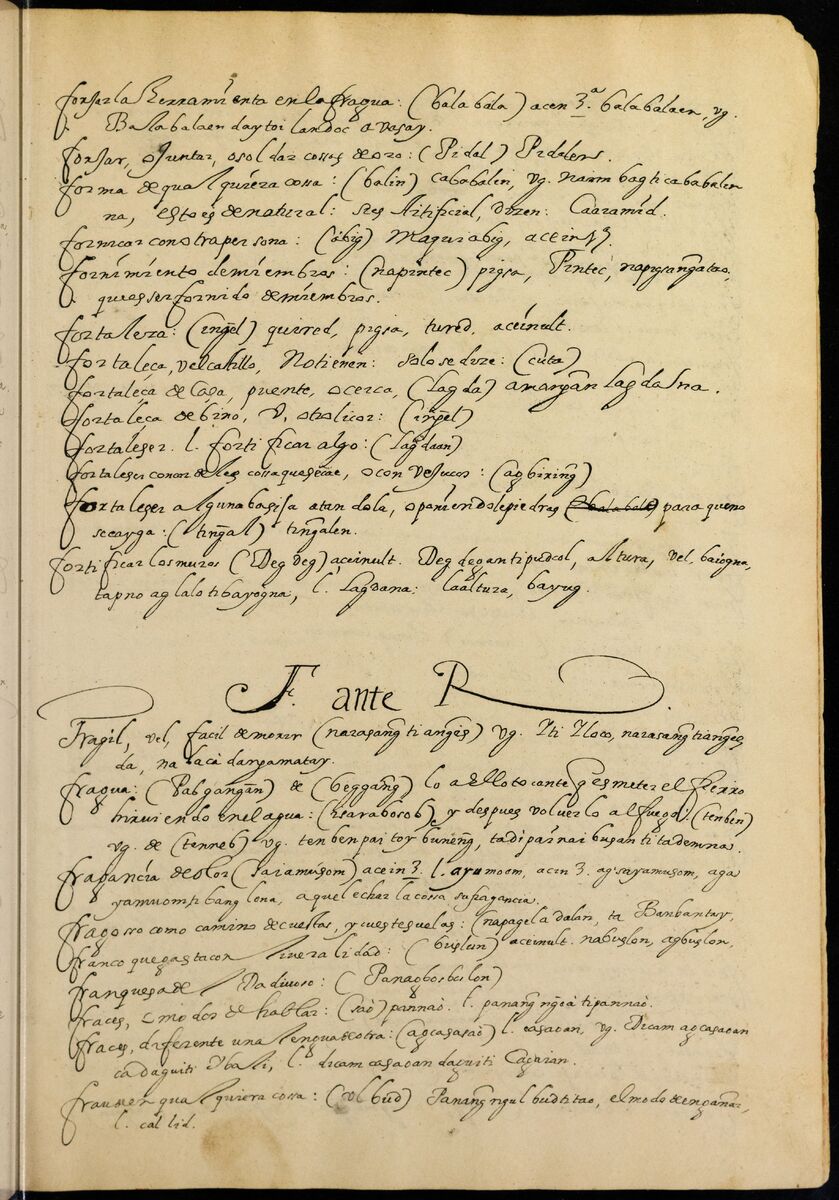 forjar la herramienta en la fragua: (balabala) acen 3.ª balabalaen, vg.
Balabalaen daytoi landoc a vasay.
forjar, o juntar, o soldar cossas de oro: (Pidal) Pidalens.
forma de qualquiera cossa: (balin) cababalin, vg. nammbagticababalin
na, esto es de natural: si es Artificial, dizen: Caaramid.
fornicar con otra persona: (abig) Maquiabig, acein
fornimiento de miembros: (napintec) pigsa, Pintec, napigsangatao,
que es ser fornido de miembros.
fortaleza: (ing̃el) quired, pigsa, tured, aceinult.
fortaleça, vel castillo, No tienen: solo se dize: (cuta)
fortaleça de Casa, puente, o cerca, (lagda) amang̃an lagdasna.
fortaleça de bino, v, otro licor: (ing̃el)
fortaleser. l. fortificar algo: (lagdaan)
fortaleser con cordeles cossa que se cae, o con vejucos: (agbiring̃)
fortaleser alguna basija atandola, o poniendole piedras (balabala) para que no
se cayga: (ting̃al) ting̃alen.
fortificar los muros (Deg deg) aceinult. Deg degantipudcol, altura, vel, baiogna,
tapno aglalotibayogna, l. lagdana: laaltura, bayug.
F. ante R.
Fragil, vel, facil de morir (narasang̃ ti ang̃es) vg. Iti Iloco, narasang̃tiang̃es
da, nalaca dang̃amatay.
fragua: (Pabgang̃an) de (beggang̃) lo a ello tocante q̃ es meter el fierro
hirviendo en el agua: (isarabosob) y despues volverlo al fuego: (tenben)
vg. de (tenneb) vg. tenbenpaitoy buneng̃, tadi pannaibusan ti tademna.
fragancia de olor (saiamusom) acein 3. l. ayumoom, acin 3. agsayamusom, aga
yamuomtibanglona, aquel echar la cossa su fragancia.
fragosso como camino de cuestas, y cuestesuelas: (napagel a dalan, ta Banbantay,
franco que gasta con liveralidad: (buslun) aceinult. nabuslon, agbuslon,
franquesa de Dadivoso: (Panagbosbslon)
fraces, o modos de hablar: (sao) pannao. l. panang ng̃oa tipannao.
fraces, diferente una lengua de otra: (agcasasao) l. casaoan, vg. Dicam agcasaoan
cadaguiti Ybali, l. dicam casaoan daguiti Cagaian.
fraude en qualquiera cossa: (ulbud) Panang̃ng̃ulbudtitao, el modo de engañar,
l. callid.